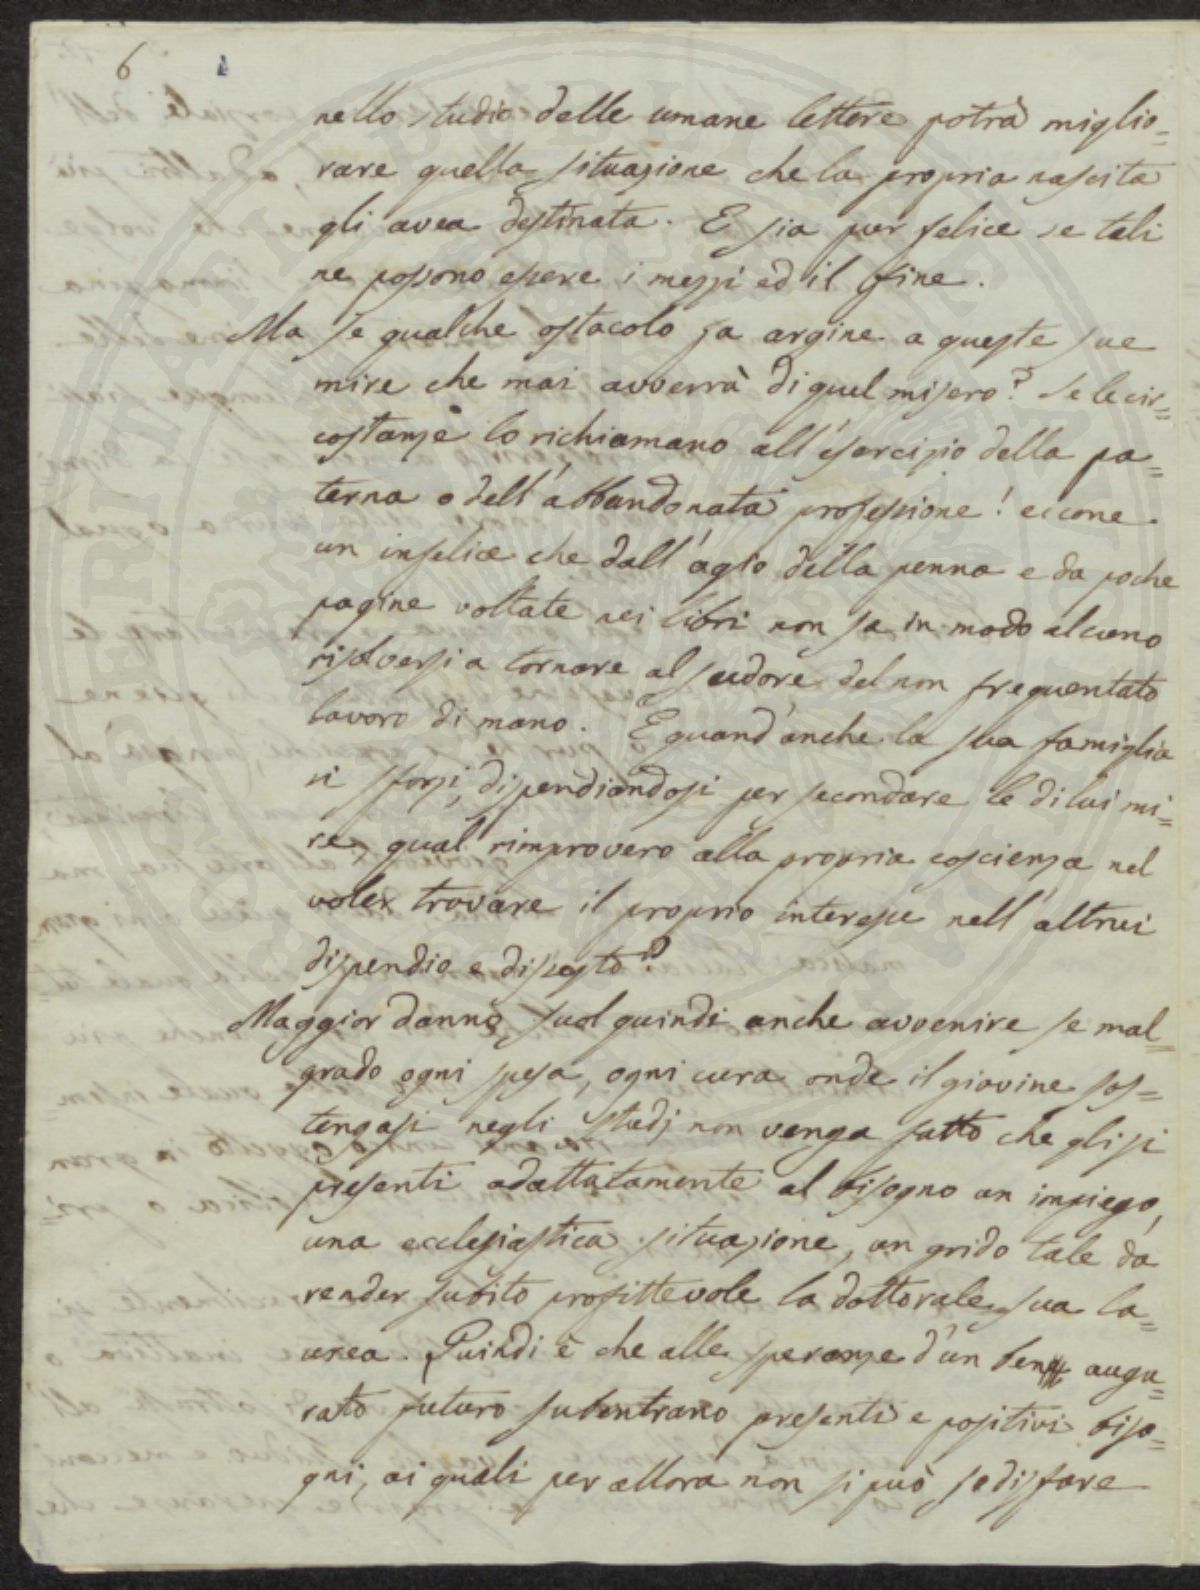 6
nello studio delle umane lettere potrà miglio=
rare quella situazione che la propria nascita
gli avea destinata. E sia pur felice se tali
ne possono essere i mezzi ed il fine.
Ma se qualche ostacolo fa argine a queste sue
mire che mai avverrà di quel misero? se le cir=
costanze lo richiamano all'esercizio della pa=
terna o dell'abbandonata professione! eccone
un infelice che dall'agio della penna e da poche
pagine voltate nei libri non sa in modo alcuno
risolversi a tornare al sudore del non frequentato
lavoro di mano. E quand'anche la sua famiglia
si sforzi, dispendiandosi per secondare le di lui mi=
re, qual rimprovero alla propria coscienza nel
voler trovare il proprio interesse nell'altrui
dispendio e dissesto?
Maggior danno suol quindi anche avvenire se mal=
grado ogni spesa, ogni cura onde il giovine sos=
tengasi negli studj non venga fatto che gli si
presenti adattatamente al bisogno un impiego,
una ecclesiastica situazione, un grido tale da
render subito profittevole la dottorale sua la=
urea. Quindi è che alle speranze d'un ben augu=
rato futuro subentrano presenti e positivi biso=
gni, ai quali per allora non si può sodisfare